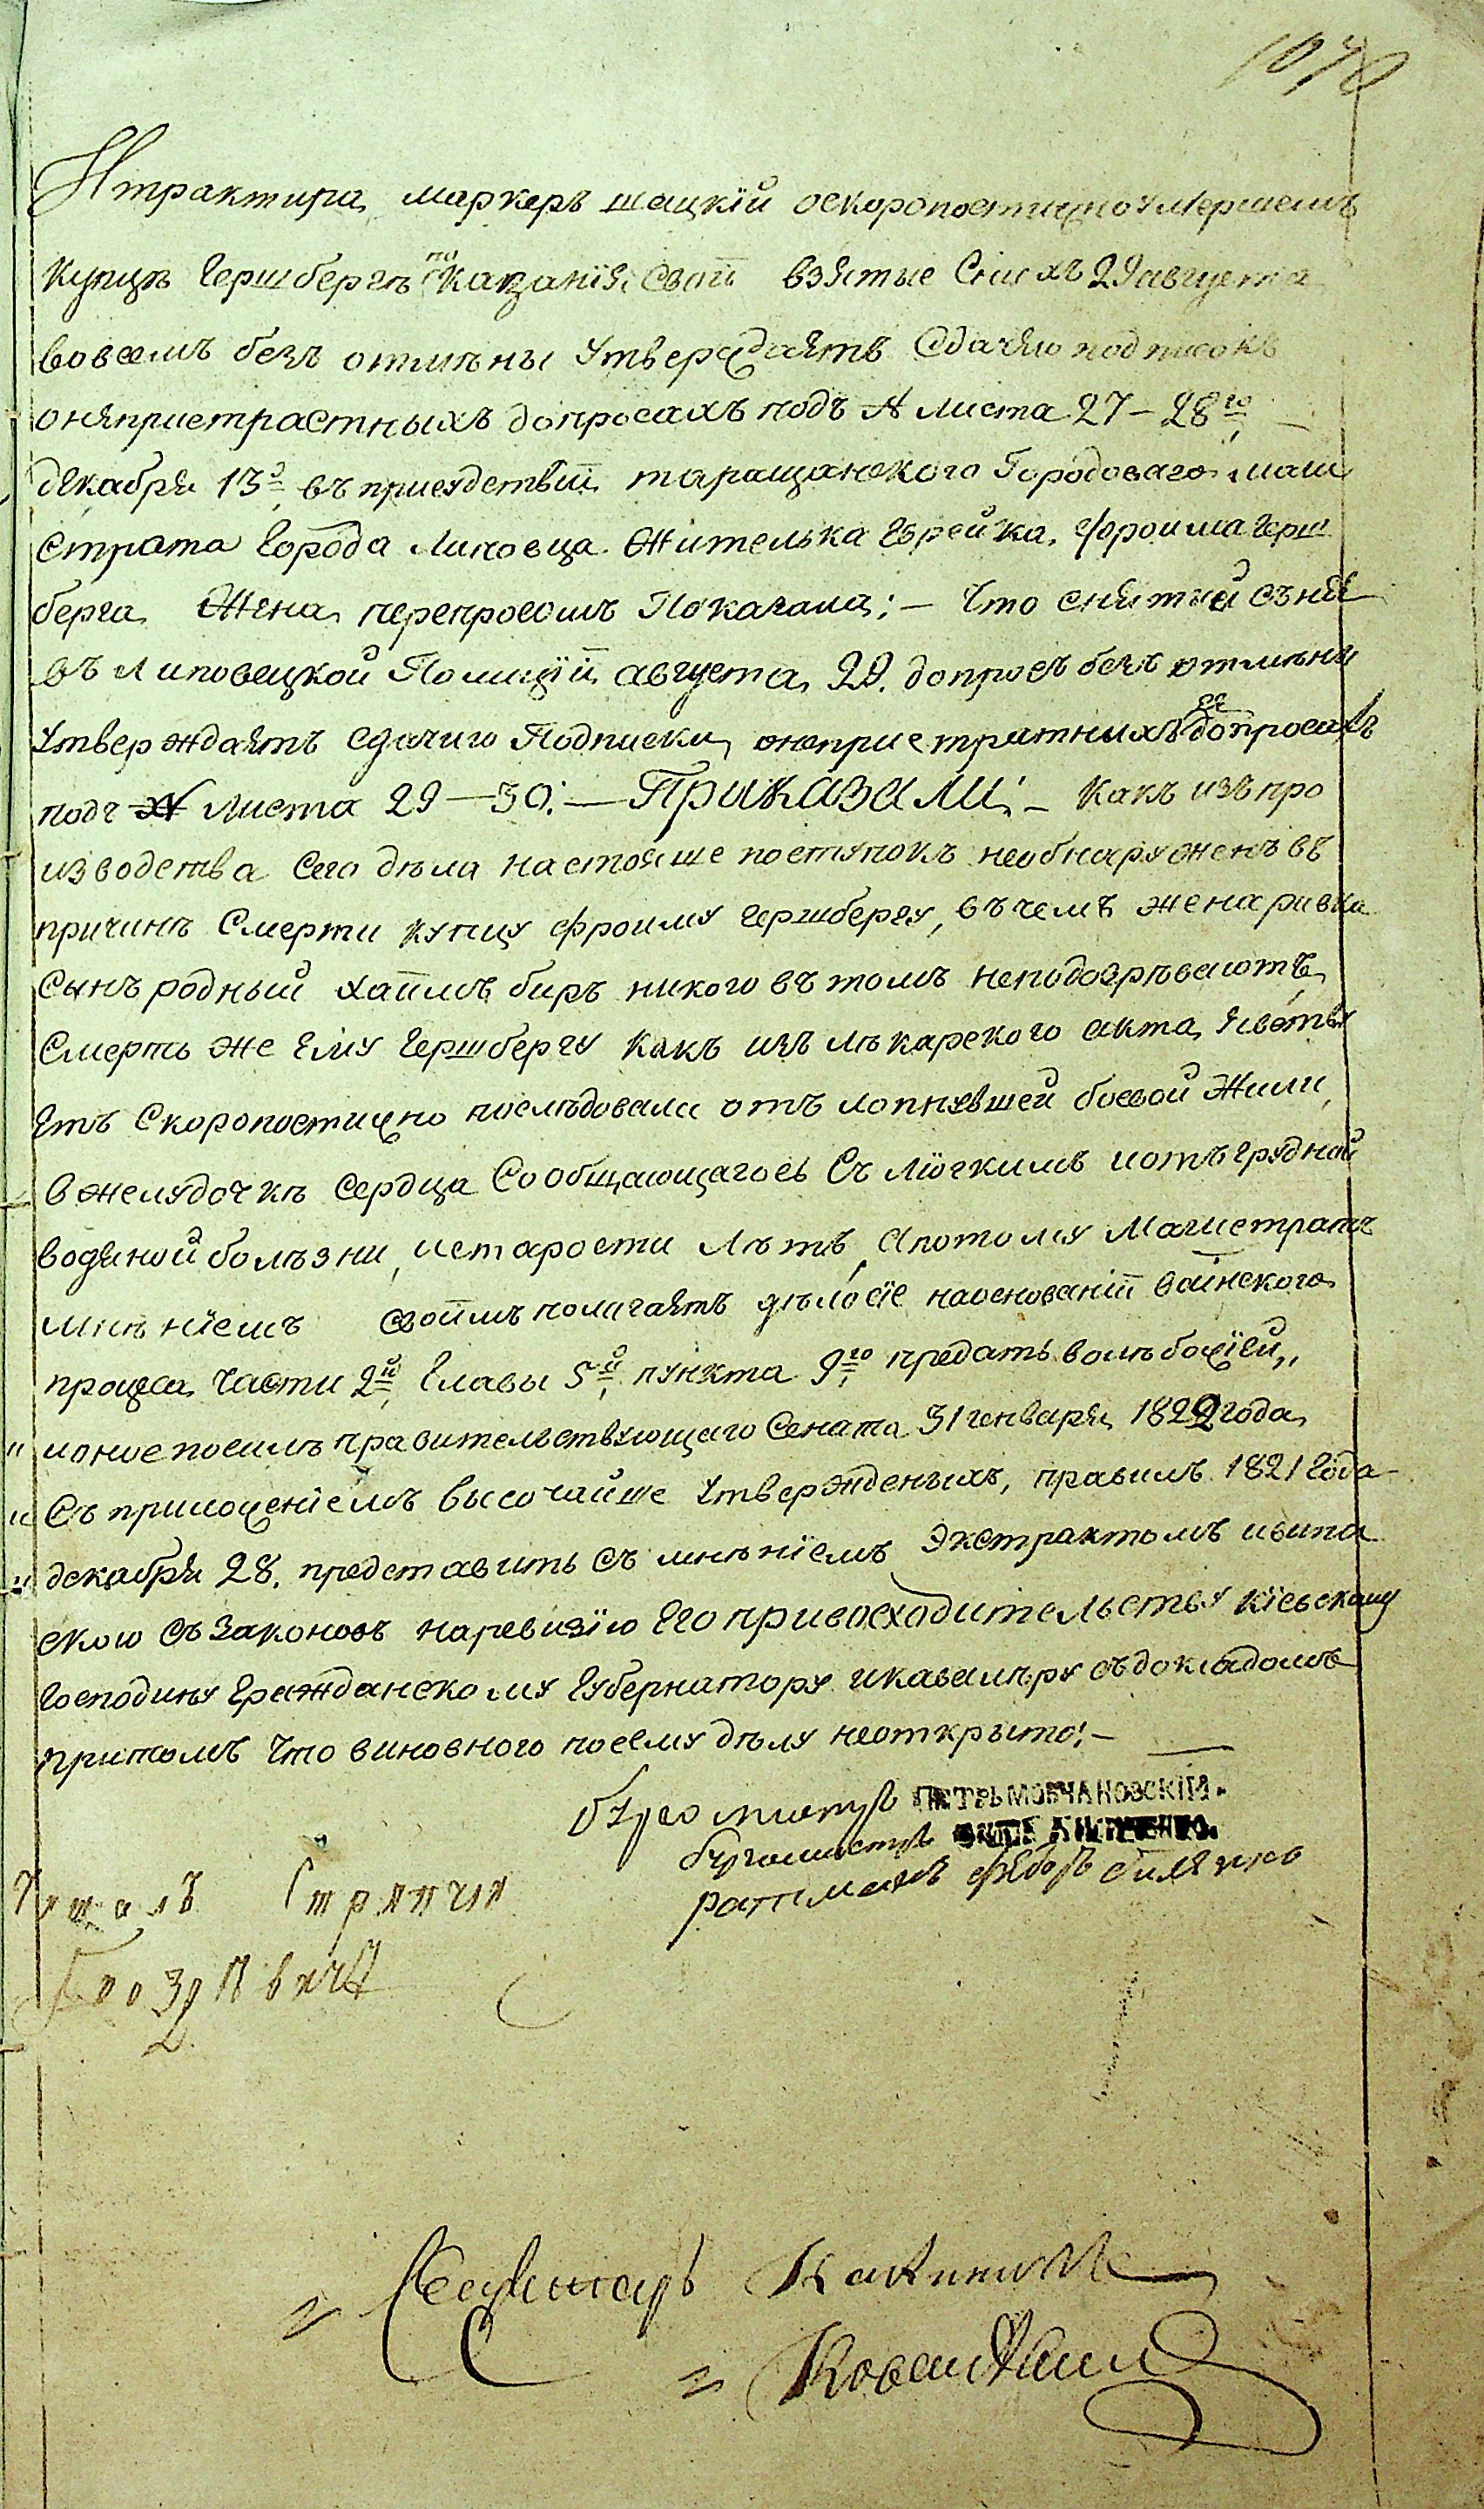 Итрактира маркеръ шацкій оскоропостижноумершемъ
купцѣ Гершбергѣ по казаніи свои взятые сихъ 29 августа
вовсемъ безъ отмѣны утверждаетъ сдачею подписокъ
онепристрастныхъ допросахъ подъ № листа 27–28го
декабря 13го въ присудствіи таращанского Городоваго маги
страта города Липовца жителька Еврейка, Фроима герш
берга жена перепросомъ показала: – что снятый снее
въ Липовецкой Полиціи августа 29. допросъ безъ отмѣны
утверждаетъ сдачию Подписки онепристратныхъ ее допросахъ
подъ № листа 29–30: – Приказали: – какъ изъ про
изводства сего дѣла настояще поступокъ необнаруженъ въ
причинѣ смерти купцу фроиму гершбергу, въ чемъ жена ривка
сынъ родный хаимъ беръ никого въ томъ неподозрѣваютъ
смерть же ему гершбергу какъ изъ лѣкарского акта явству
етъ скоропостижно послѣдовала отъ лопнувшей боевой жили,
в желудочкѣ сердца сообщающагось съ лёгкимъ иотъ грудной
водяной болѣзни, истарости лѣтъ, Апотому Магистратъ
мнѣніемъ своимъ полагаетъ дѣло сіе наоснованіи воинского
процеса части 2й главы 5й пункта 9го предать волѣ божіей,,
" ионое посилѣ правительствующаго Сената 31 генваря 1822 года
" съ приложеніемъ высочайше утвержденыхъ, правилъ 1821 года
" декабря 28. представить съ мнѣніемъ экстрактомъ ивипи
скою съ законовъ наревизію Его привосходительству кіевскому
господину гражданскому губернатору икавалѣру съ докладомъ
притомъ что виновного посему дѣлу неоткрыто: –
бургомистръ ПЕТРЪ МОВЧАНОВСКІЙ.
бургомистръ
ратманъ федоръ
Читалъ Стряпчій
Секретарь